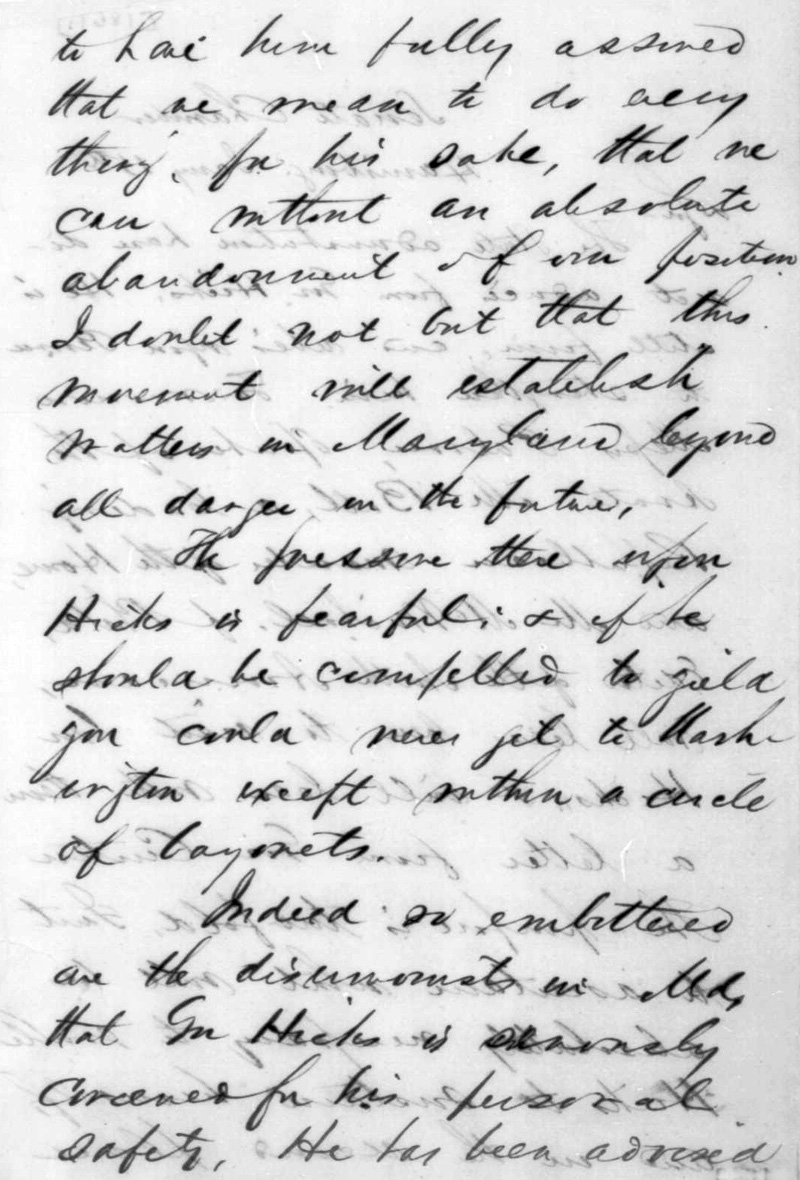 to have him fully assured
that we mean to do every
thing, for his sake, that we
can without an absolute
abandonment of our position
I doubt not but that this
movement will establish
matters in Maryland beyond
all danger in the future,
The pressure there upon
Hicks is fearful; & if he
should be compelled to yield
you could never get to Wash-
ington except within a circle
of bayonets.
Indeed so embittered
are the disunionists in Md,
that Gov Hicks is seriously
concerned for his personal
safety, He has been advised